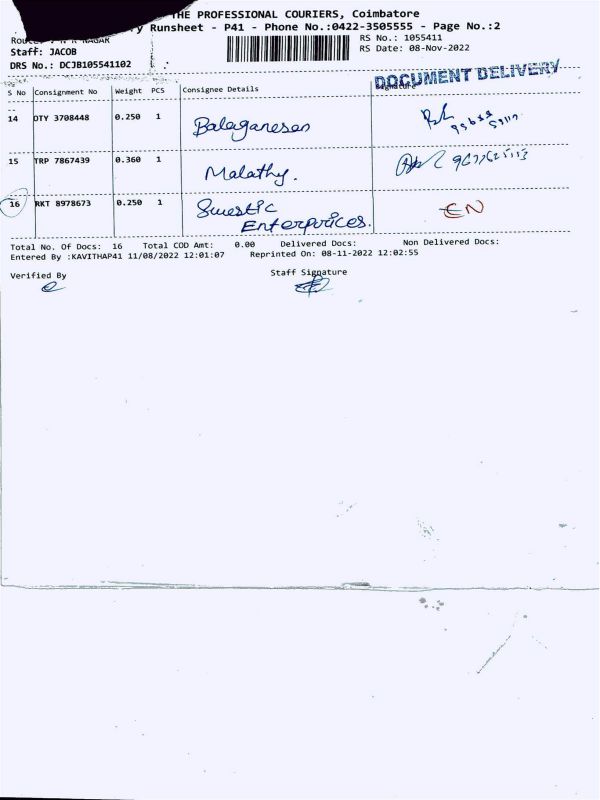 THE PROFESSIONAL COURIERS, Coimbatore
Runsheet - P41 - Phone No.:0422-3505555 - Page No.:2
NAGAR
RS No.: 1055411
Staff: JACOB
RS Date: 08-Nov-2022
DRS No.: DCJB105541102
DOCUMENT DELIVERY
S No Consignment No Weight PCS Consignee Details Signature
14 DTY 3708448 0.250 1 Balaganesan
15 TRP 7867439 0.360 1 Malathy.
16 RKT 8978673 0.250 1 Swestic
Enterprices.
EN
Total No. Of Docs: 16 Total COD Amt: 0.00 Delivered Docs: Non Delivered Docs:
Entered By :KAVITHAP41 11/08/2022 12:01:07 Reprinted On: 08-11-2022 12:02:55
Verified By Staff Signature